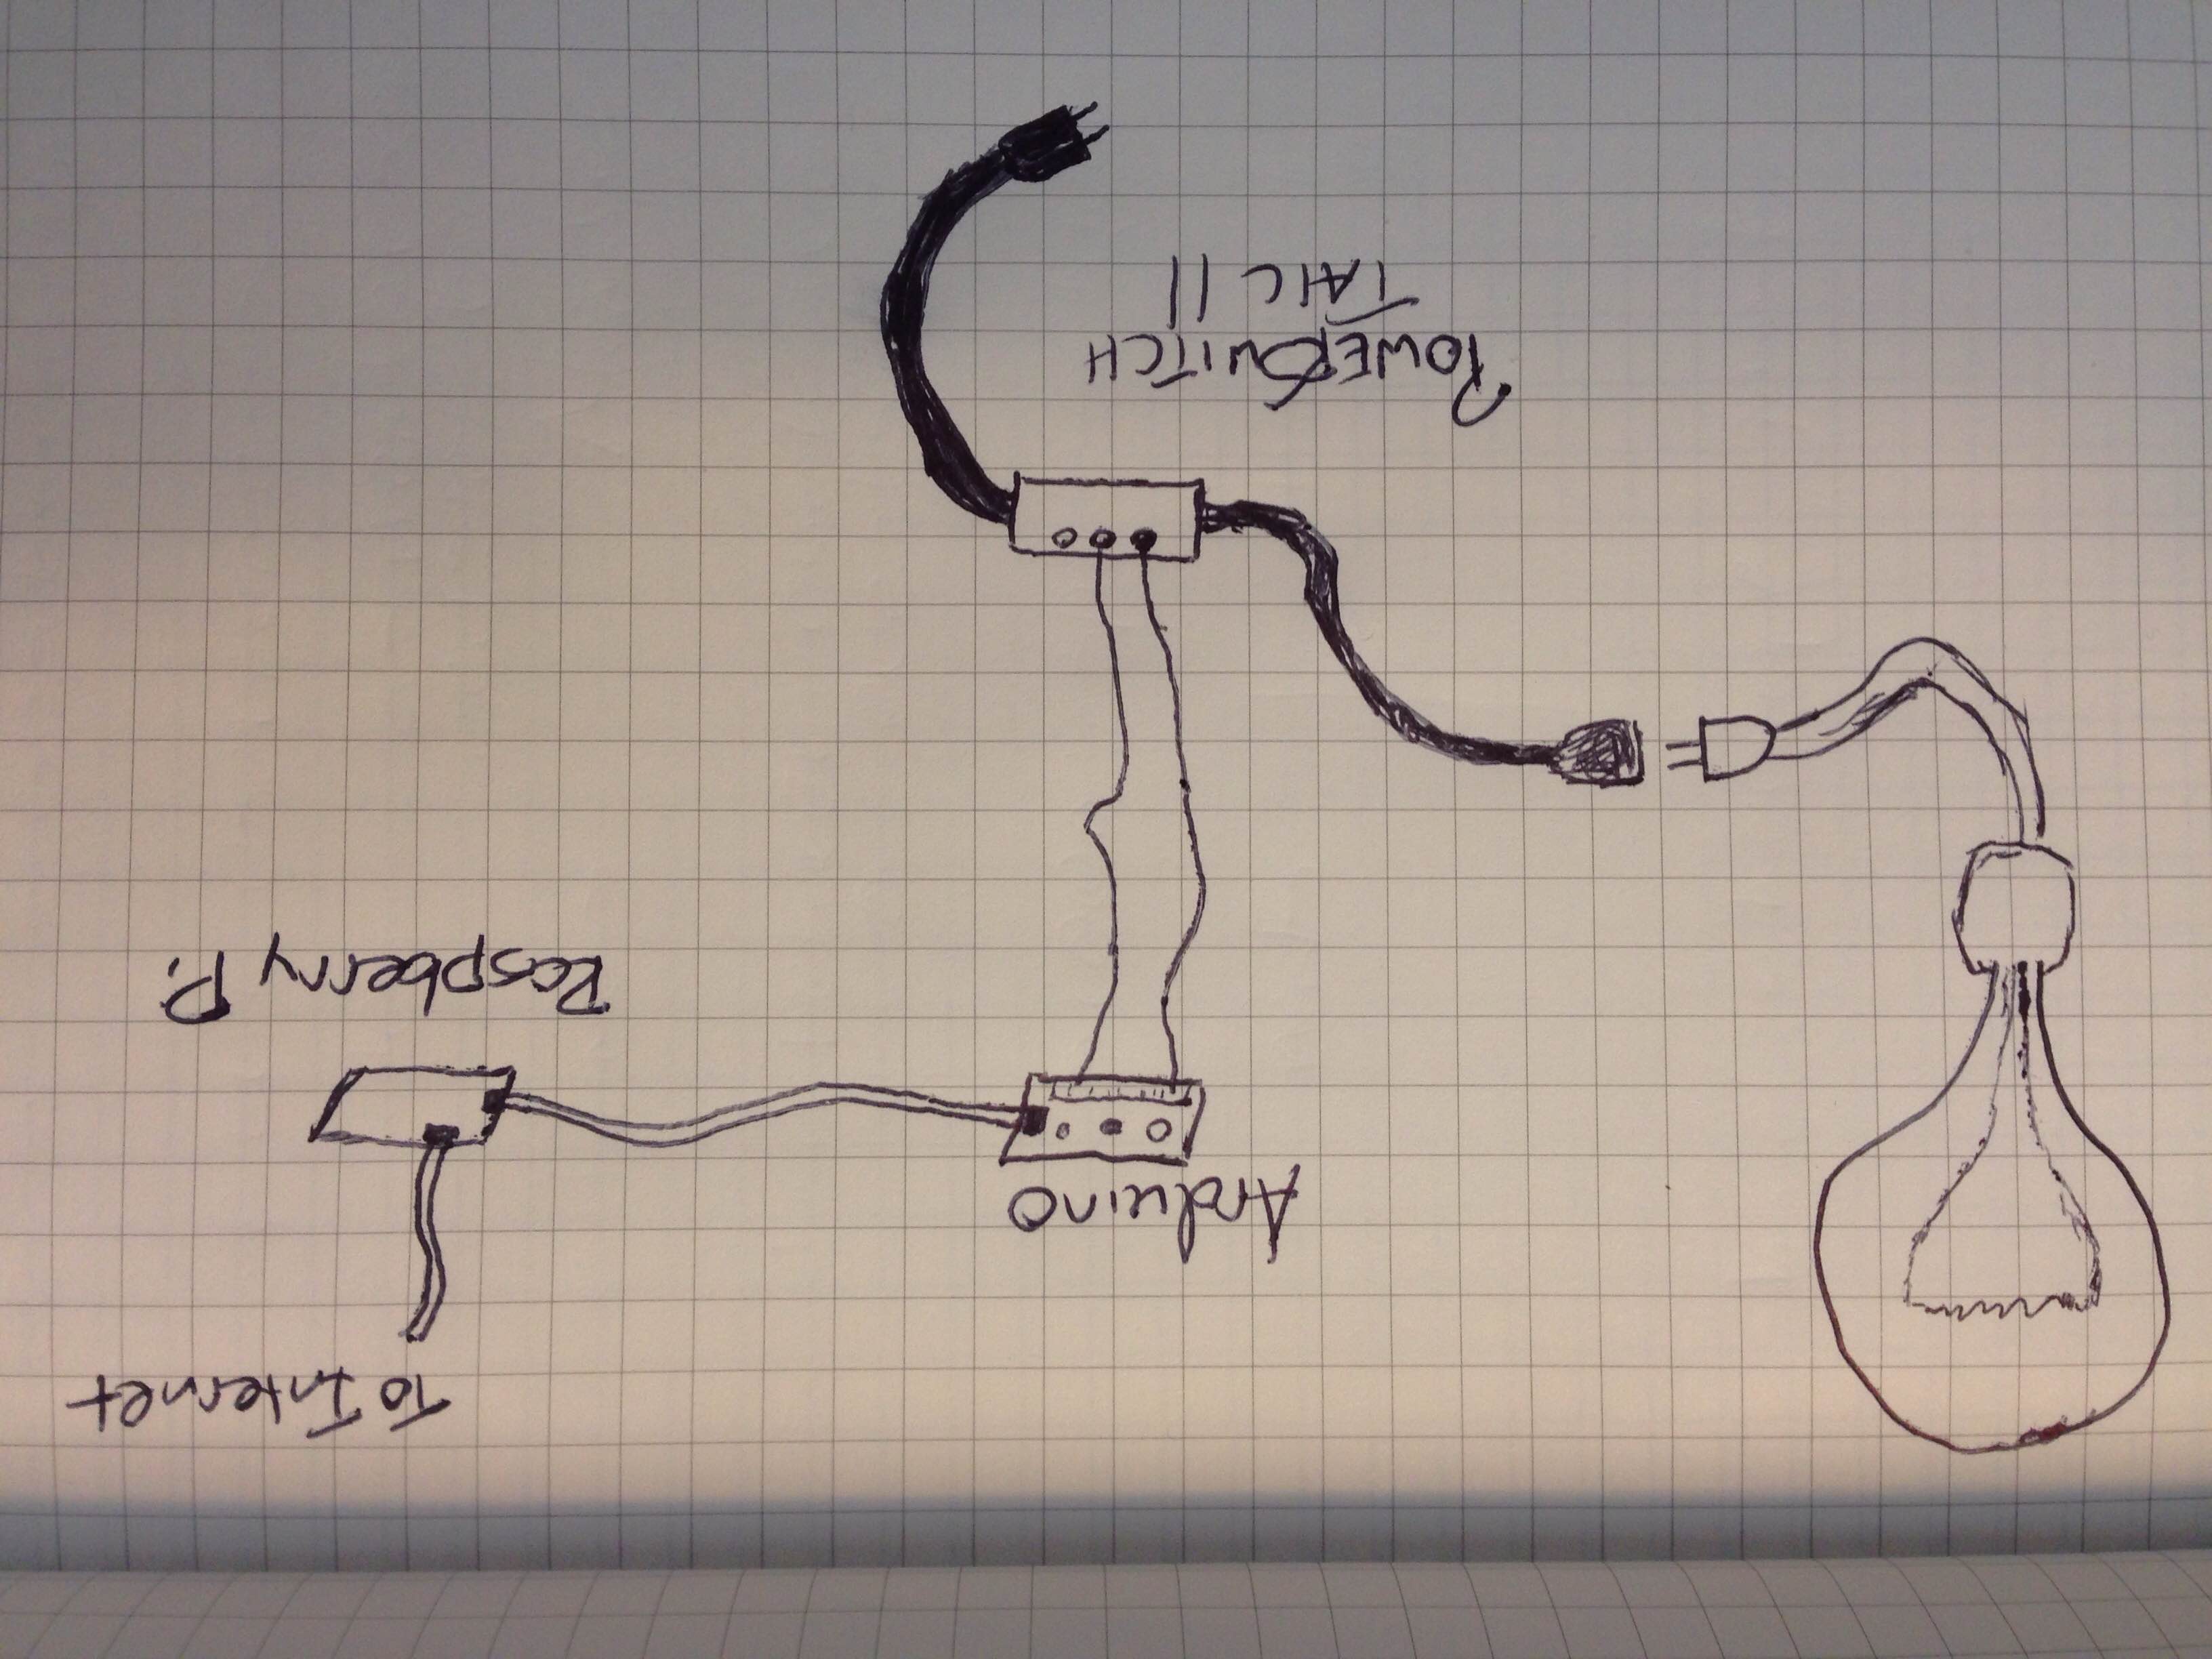 To Internet
Arduino
Raspberry Pi
PowerSwitch
Tail II